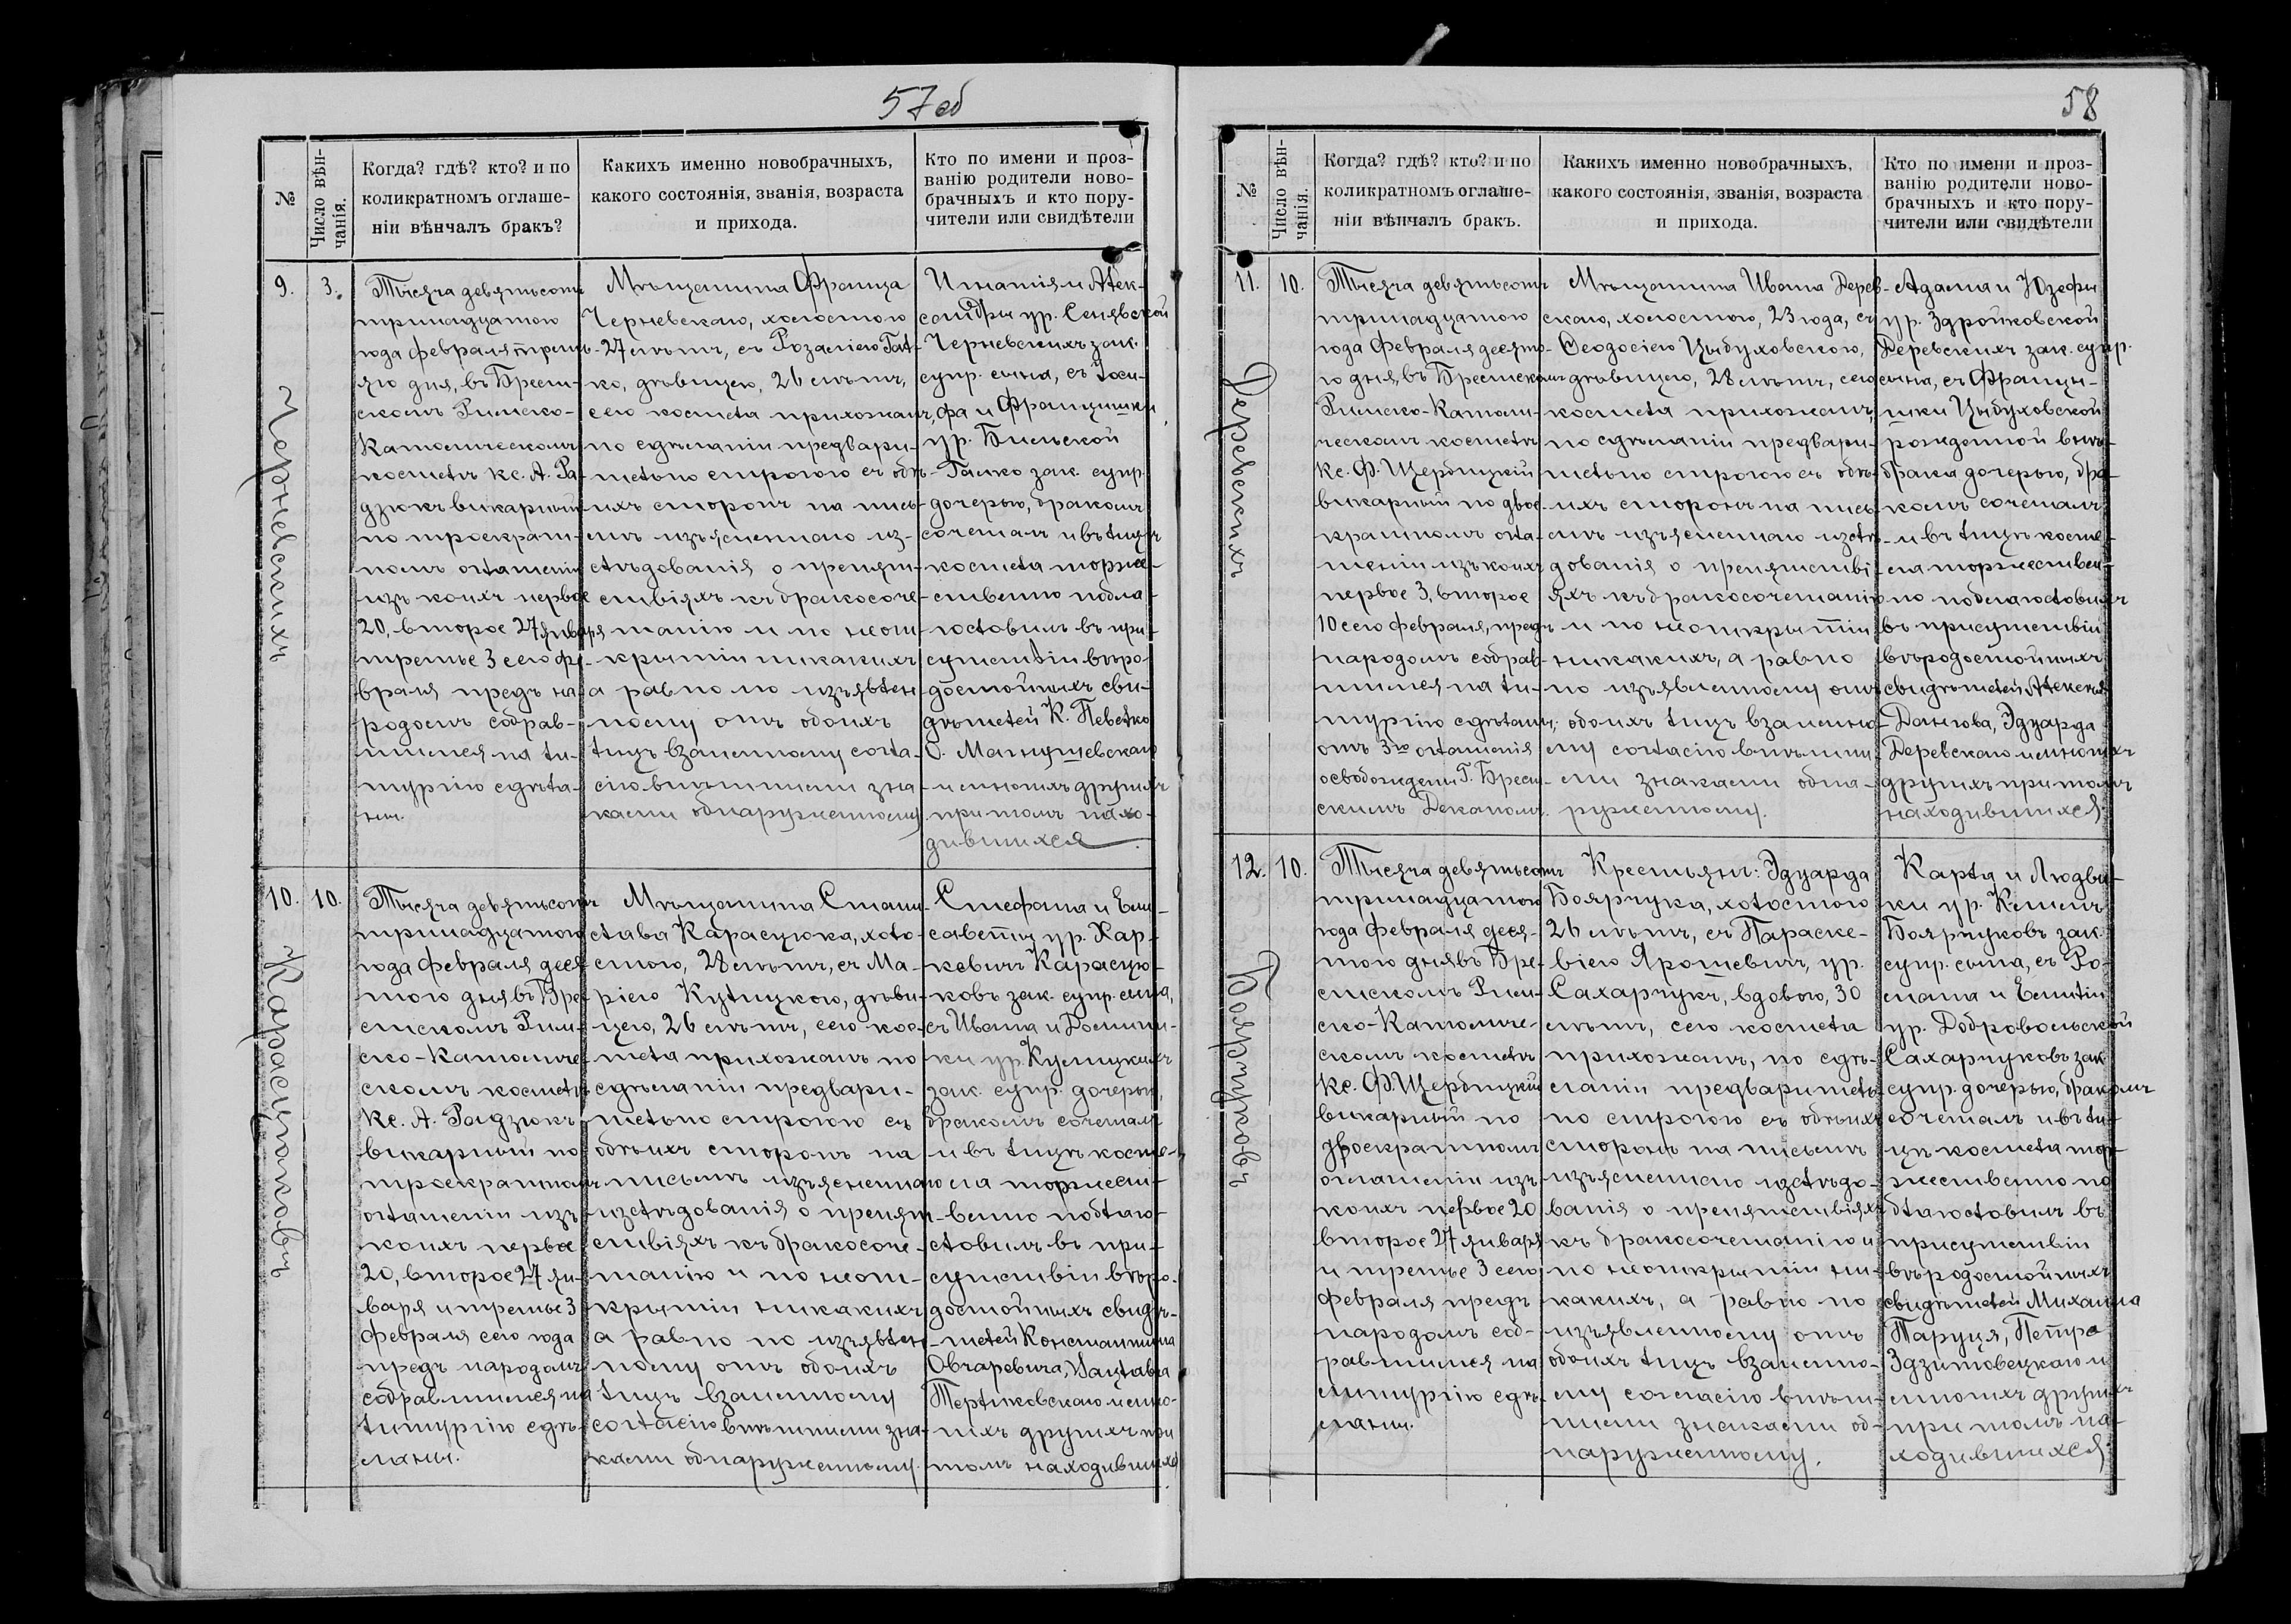 57 об
№
Число вѣн-
чанія.
Когда? гдѣ? кто? и по
коликратномъ оглаше-
ніи вѣнчалъ бракъ?
Какихъ именно новобрачныхъ,
какого состоянія, званія, возраста
и прихода.
Кто по имени и проз-
ванію родители ново-
брачныхъ и кто пору-
чители или свидѣтели
9.
3.
Черневскихъ
Тысяча девятьсотъ
тринадцатого
года февраля треть-
яго дня, въ Брест-
скомъ Римско-
Католическомъ
костелѣ кс. А. Ра-
дзюкъ викарный
по троекрат-
номъ оглашеніи
изъ коихъ первое
20, второе 27 января
третье 3 сего фе-
враля предъ на-
родомъ собрав-
шимся на ли-
тургію сдѣла-
ны.
Мѣщанина Франца
Черневскаго, холостого
27 лѣтъ, съ Розаліею Гал-
ко, дѣвицею, 26 лѣтъ,
сего костела прихожанъ,
по сдѣланіи предвари-
тельно строгого съ обѣ-
ихъ сторонъ на пись-
мѣ изъясненнаго из-
слѣдованія о препят-
ствіяхъ къ бракосоче-
танію и по неот-
крытіи никакихъ
а равно по изъявлен-
ному отъ обоихъ
лицъ взаимному согла-
сію внѣшними зна-
ками обнаруженному
Игнатія и Алек-
сандры ур. Сенявской
Черневскихъ зак.
супр. сына, съ Іоси-
фа и Францишки
ур. Бильской
Галко зак. супр.
дочерью, бракомъ
сочеталъ и въ лицѣ
костела торже-
ственно побла-
гословилъ въ при-
сутствіи вѣро-
достойныхъ сви-
дѣтелей К. Певейко
О. Манушевскаго
и многихъ другихъ
при томъ нахо-
дившихся
10.
10.
Карасюковъ
Тысяча девятьсотъ
тринадцатого
года февраля деся-
того дня въ Бре-
стскомъ Рим-
ско-Католиче-
скомъ костелѣ
Кс. А. Радзюкъ
викарный по
троекратномъ
оглашеніи изъ
коихъ первое
20, второе 27 ян-
варя и третье 3
февраля сего года
предъ народомъ
собравшимся на
литургію сдѣ-
ланы.
Мѣщанина Стани-
слава Карасюка, холо-
стого, 28 лѣтъ, съ Ма-
ріею Кулицкою, дѣви-
цею, 26 лѣтъ, сего кос-
тела прихожанъ по
сдѣланіи предвари-
тельно строгого съ
обѣихъ сторонъ на
письмѣ изъясненнаго
изслѣдованія о препят-
ствіяхъ къ бракосоче-
танію и по неот-
крытіи никакихъ
а равно по изъявлен-
ному отъ обоихъ
лицъ взаимному
согласію внѣшними зна-
ками обнаруженному.
Стефана и Ели-
саветы ур. Хар-
кевичъ Карасю-
ковъ зак. супр. сына,
съ Ивана и Домини-
ки ур. Кулицкихъ
зак. супр. дочерью,
бракомъ сочеталъ
и въ лицѣ косте-
ла торжест-
венно поблаго-
словилъ въ при-
сутствіи вѣро-
достойныхъ свидѣ-
телей Константина
Овчаревича, Вацлава
Терликовскаго и мно-
гихъ другихъ при
томъ находившихся
58
№
Число вѣн-
чанія.
Когда? гдѣ? кто? и по
коликратномъ оглаше-
ніи вѣнчалъ бракъ.
Какихъ именно новобрачныхъ,
какого состоянія, званія, возраста
и прихода.
Кто по имени и проз-
ванію родители ново-
брачныхъ и кто пору-
чители или свидѣтели
11.
10.
Деревскихъ
Тысяча девятьсотъ
тринадцатого
года февраля десято-
го дня, въ Брестскомъ
Римско-Католи-
ческомъ костелѣ
Кс. Ф. Щербицкій
викарный по двое-
кратномъ огла-
шеніи изъ коихъ
первое 3, второе
10 сего февраля, предъ
народомъ собрав-
шимся на ли-
тургію сдѣланы;
отъ 3го оглашенія
освобождены Г. Брест-
скимъ Деканомъ.
Мѣщанина Ивана Дерев-
скаго, холостого, 23 года, съ
Ѳеодосіею Цыбуховскою,
дѣвицею, 28 лѣтъ, сего
костела прихожанъ,
по сдѣланіи предвари-
тельно строгого съ обѣ-
ихъ сторонъ на пись-
мѣ изъясненнаго изслѣ-
дованія о препятстві-
яхъ къ бракосочетанію
и по неоткрытіи
никакихъ, а равно
по изъявленному отъ
обоихъ лицъ взаимно-
му согласію внѣшни-
ми знаками обна-
руженному.
Адама и Юзефы
ур. Здройковской
Деревскихъ зак. супр.
сына, съ Францы-
шки Цыбуховской
рожденной внѣ
брака дочерью, бра-
комъ сочеталъ
и въ лицѣ косте-
ла торжествен-
но поблагословилъ
въ присутствіи
вѣродостойныхъ
свидѣтелей Алексея
Дангова, Эдуарда
Деревскаго и многихъ
другихъ при томъ
находившихся
12.
10.
Боярчуковъ
Тысяча девятьсотъ
тринадцатого
года февраля деся-
того дня въ Бре-
стскомъ Рим-
ско-Католиче-
скомъ костелѣ
Кс. Ф. Щербицкій
викарный по
двоекратномъ
оглашеніи изъ
коихъ первое 20
второе 27 января
и третье 3 сего
февраля предъ
народомъ соб-
равшимся на
литургію сдѣ-
ланы.
Крестьянъ: Эдуарда
Боярчука, холостого
26 лѣтъ, съ Параске-
віею Ярошевичъ, ур.
Сахарчукъ, вдовою, 30
лѣтъ, сего костела
прихожанъ, по сдѣ-
ланіи предваритель-
но строгого съ обѣихъ
сторонъ на письмѣ
изъясненнаго изслѣдо-
ванія о препятствіяхъ
къ бракосочетанію и
по неоткрытіи ни-
какихъ, а равно по
изъявленному отъ
обоихъ лицъ взаимно-
му согласію внѣш-
ними знаками об-
наруженному.
Карла и Людви-
ки ур. Клишъ
Боярчуковъ зак.
супр. сына, съ Ро-
мана и Емиліи
ур. Добровольской
Сахарчуковъ зак.
супр. дочерью, бракомъ
сочеталъ и въ ли-
цѣ костела тор-
жественно по-
благословилъ въ
присутствіи
вѣродостойныхъ
свидѣтелей Михаила
Таруця, Петра
Здзитовецкаго и
многихъ другихъ
при томъ на-
ходившихся